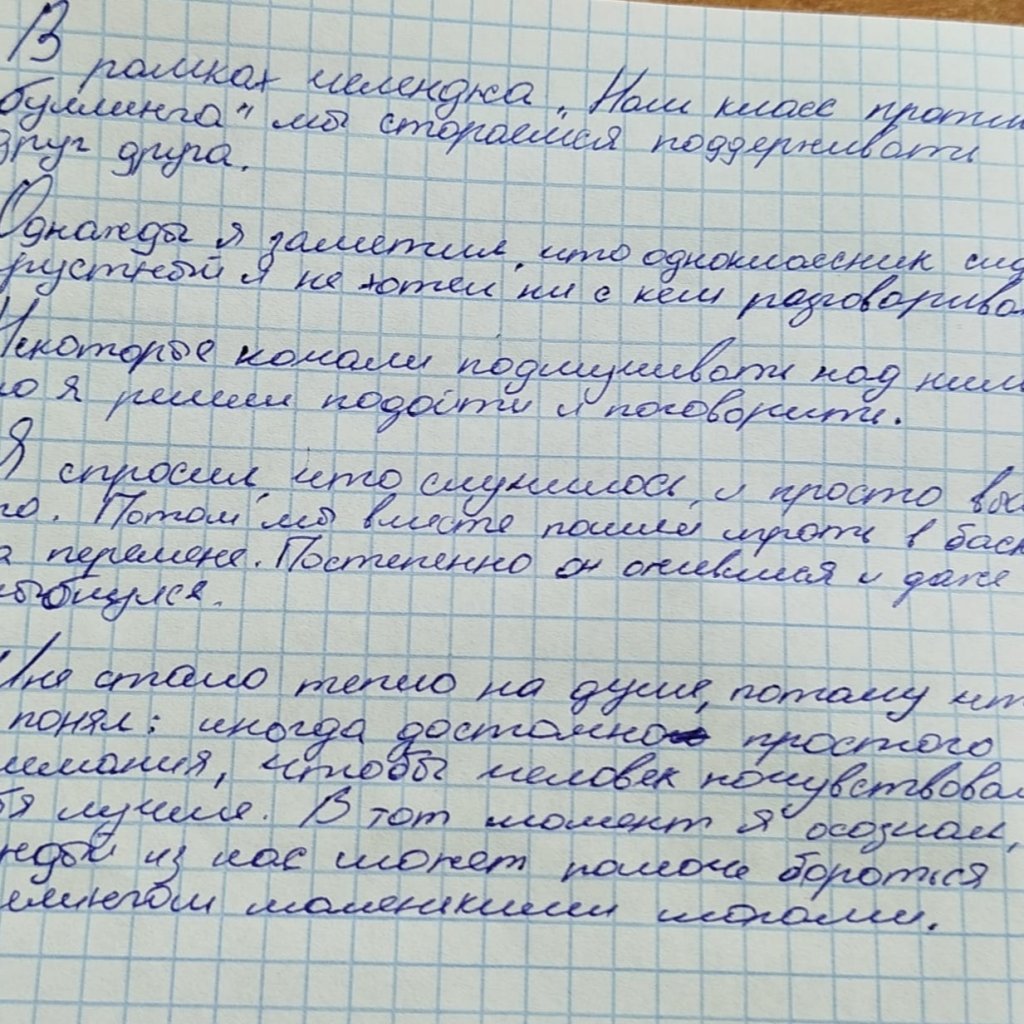 В рамках челенджа „Наш класс против
буллинга" мы стараемся поддерживать
друг друга.
Однажды я заметил, что одноклассник сид
грустный я не хотел ни с кем разговарива
Некоторые начали подшучивать над ним
но я решил подойти и поговорить.
Я спросил, что случилось, и просто выс
го. Потом мы вместе пошли играть в баск
а перемене. Постепенно он оживился и даже
улыбнулся.
Мне стало тепло на душе, потому чт
понял: иногда достаточно простого
нимания, чтобы человек почувствовал
бя лучше. В тот момент я осознал,
ждый из нас может помочь бороться
ллингом маленькими шагами.